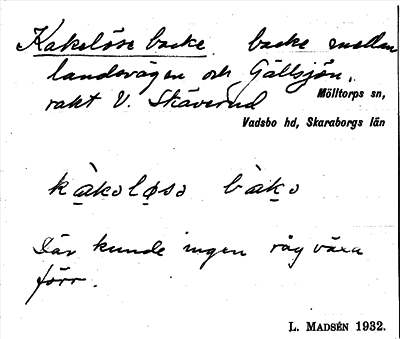 Kakelöse backe backe mellan
landsvägen och Gällsjön,
rakt V. Skäverud
Mölltorps sn,
Vadsbo hd, Skaraborgs län
kàkoløso bàko
Där kunde ingen råg växa
förr.
L. MADSÉN 1932.